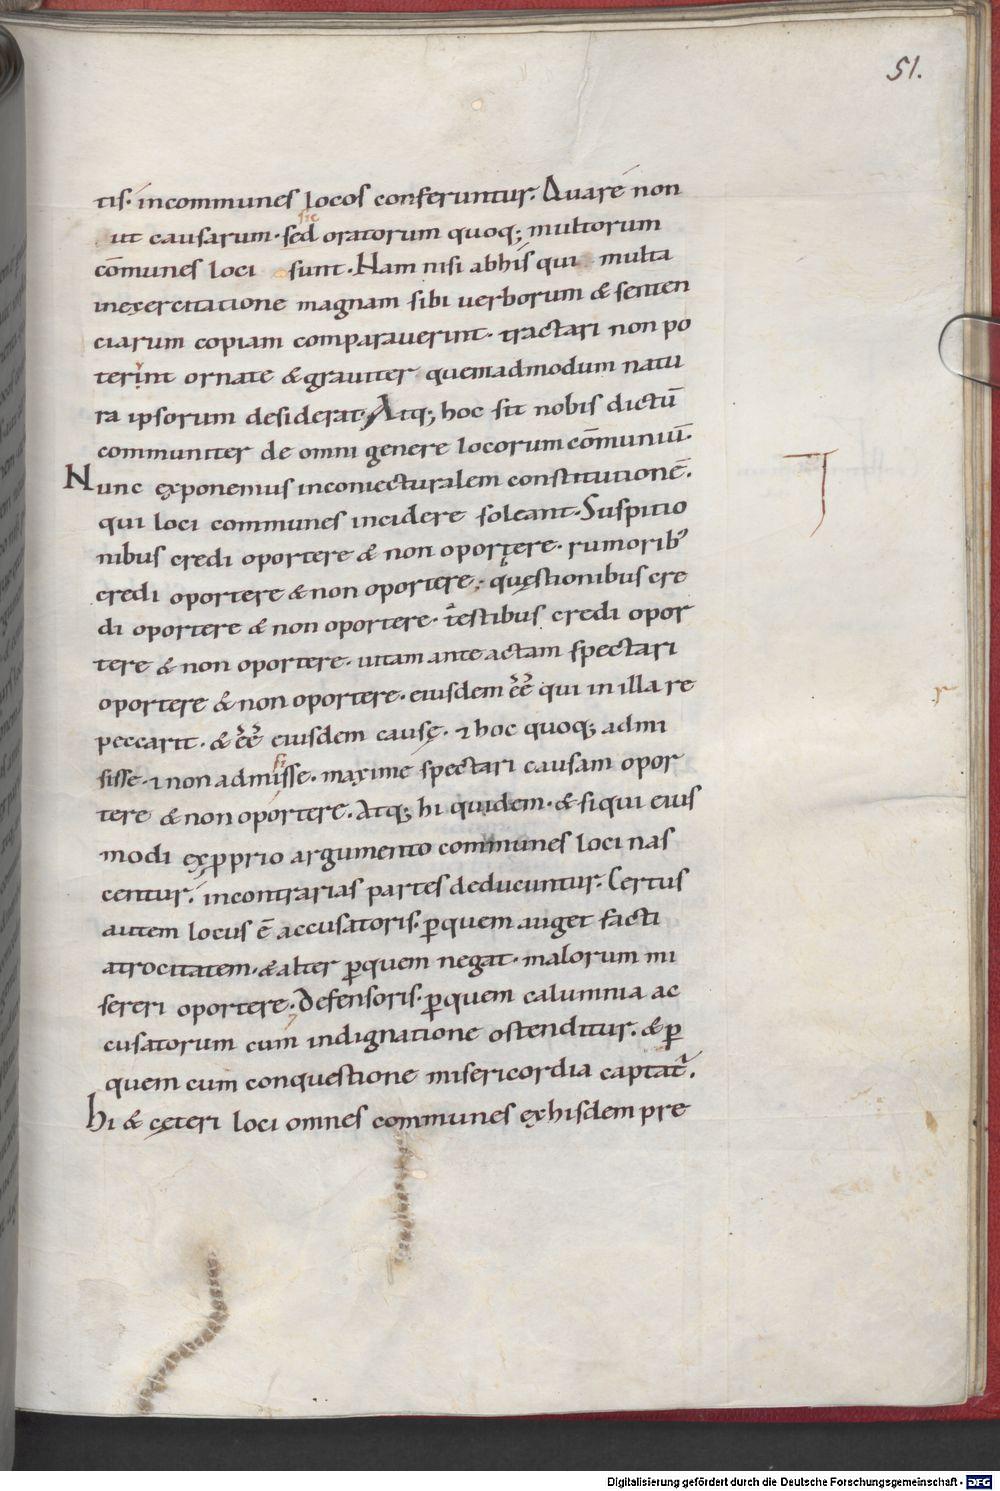 51.
tis· incommunes locos conferuntur. Quare non
ut causarum· sed oratorum quoq; multorum
sic
cōmunes loci sunt. Nam nisi abhis qui multa
inexercitatione magnam sibi uerborum & senten
ciarum copiam comparauerint· tractari non po
terint ornate & grauiter quemadmodum natu
ra ipsorum desiderat, Atq; hoc sit nobis dictū
communiter de omni genere locorum cōmuniū·
Nunc exponemus inconiecturalem constitutionē.
qui loci communes incidere soleant. Suspitio
nibus credi oportere & non oportere. rumorib'
credi oportere & non oportere; quęstionibus cre
di oportere & non oportere. testibus credi opor
tere & non oportere. uitam ante actam spectari
oportere & non oportere. eiusdem ēē qui in illa re
peccarit. & ēē eiusdem causę. ⁊ hoc quoq; admi
si
sisse. ⁊ non admisse. maxime spectari causam opor
tere & non oportere. Atq; hi quidem. & siqui eius
modi exꝓprio argumento communes loci nas
centur. incontrarias partes deducuntur. Certus
autem locus ē accusatoris. ꝑquem auget facti
atrocitatem. & alter ꝑquem negat. malorum mi
sereri oportere. Defensoris. ꝑquem calumnia ac
cusatorum cum indignatione ostenditur. & ꝑ
quem cum conquestione misericordia captat̄.
hi & cęteri loci omnes communes exhisdem pre
r
Digitalisierung gefördert durch die Deutsche Forschungsgemeinschaft - DFG